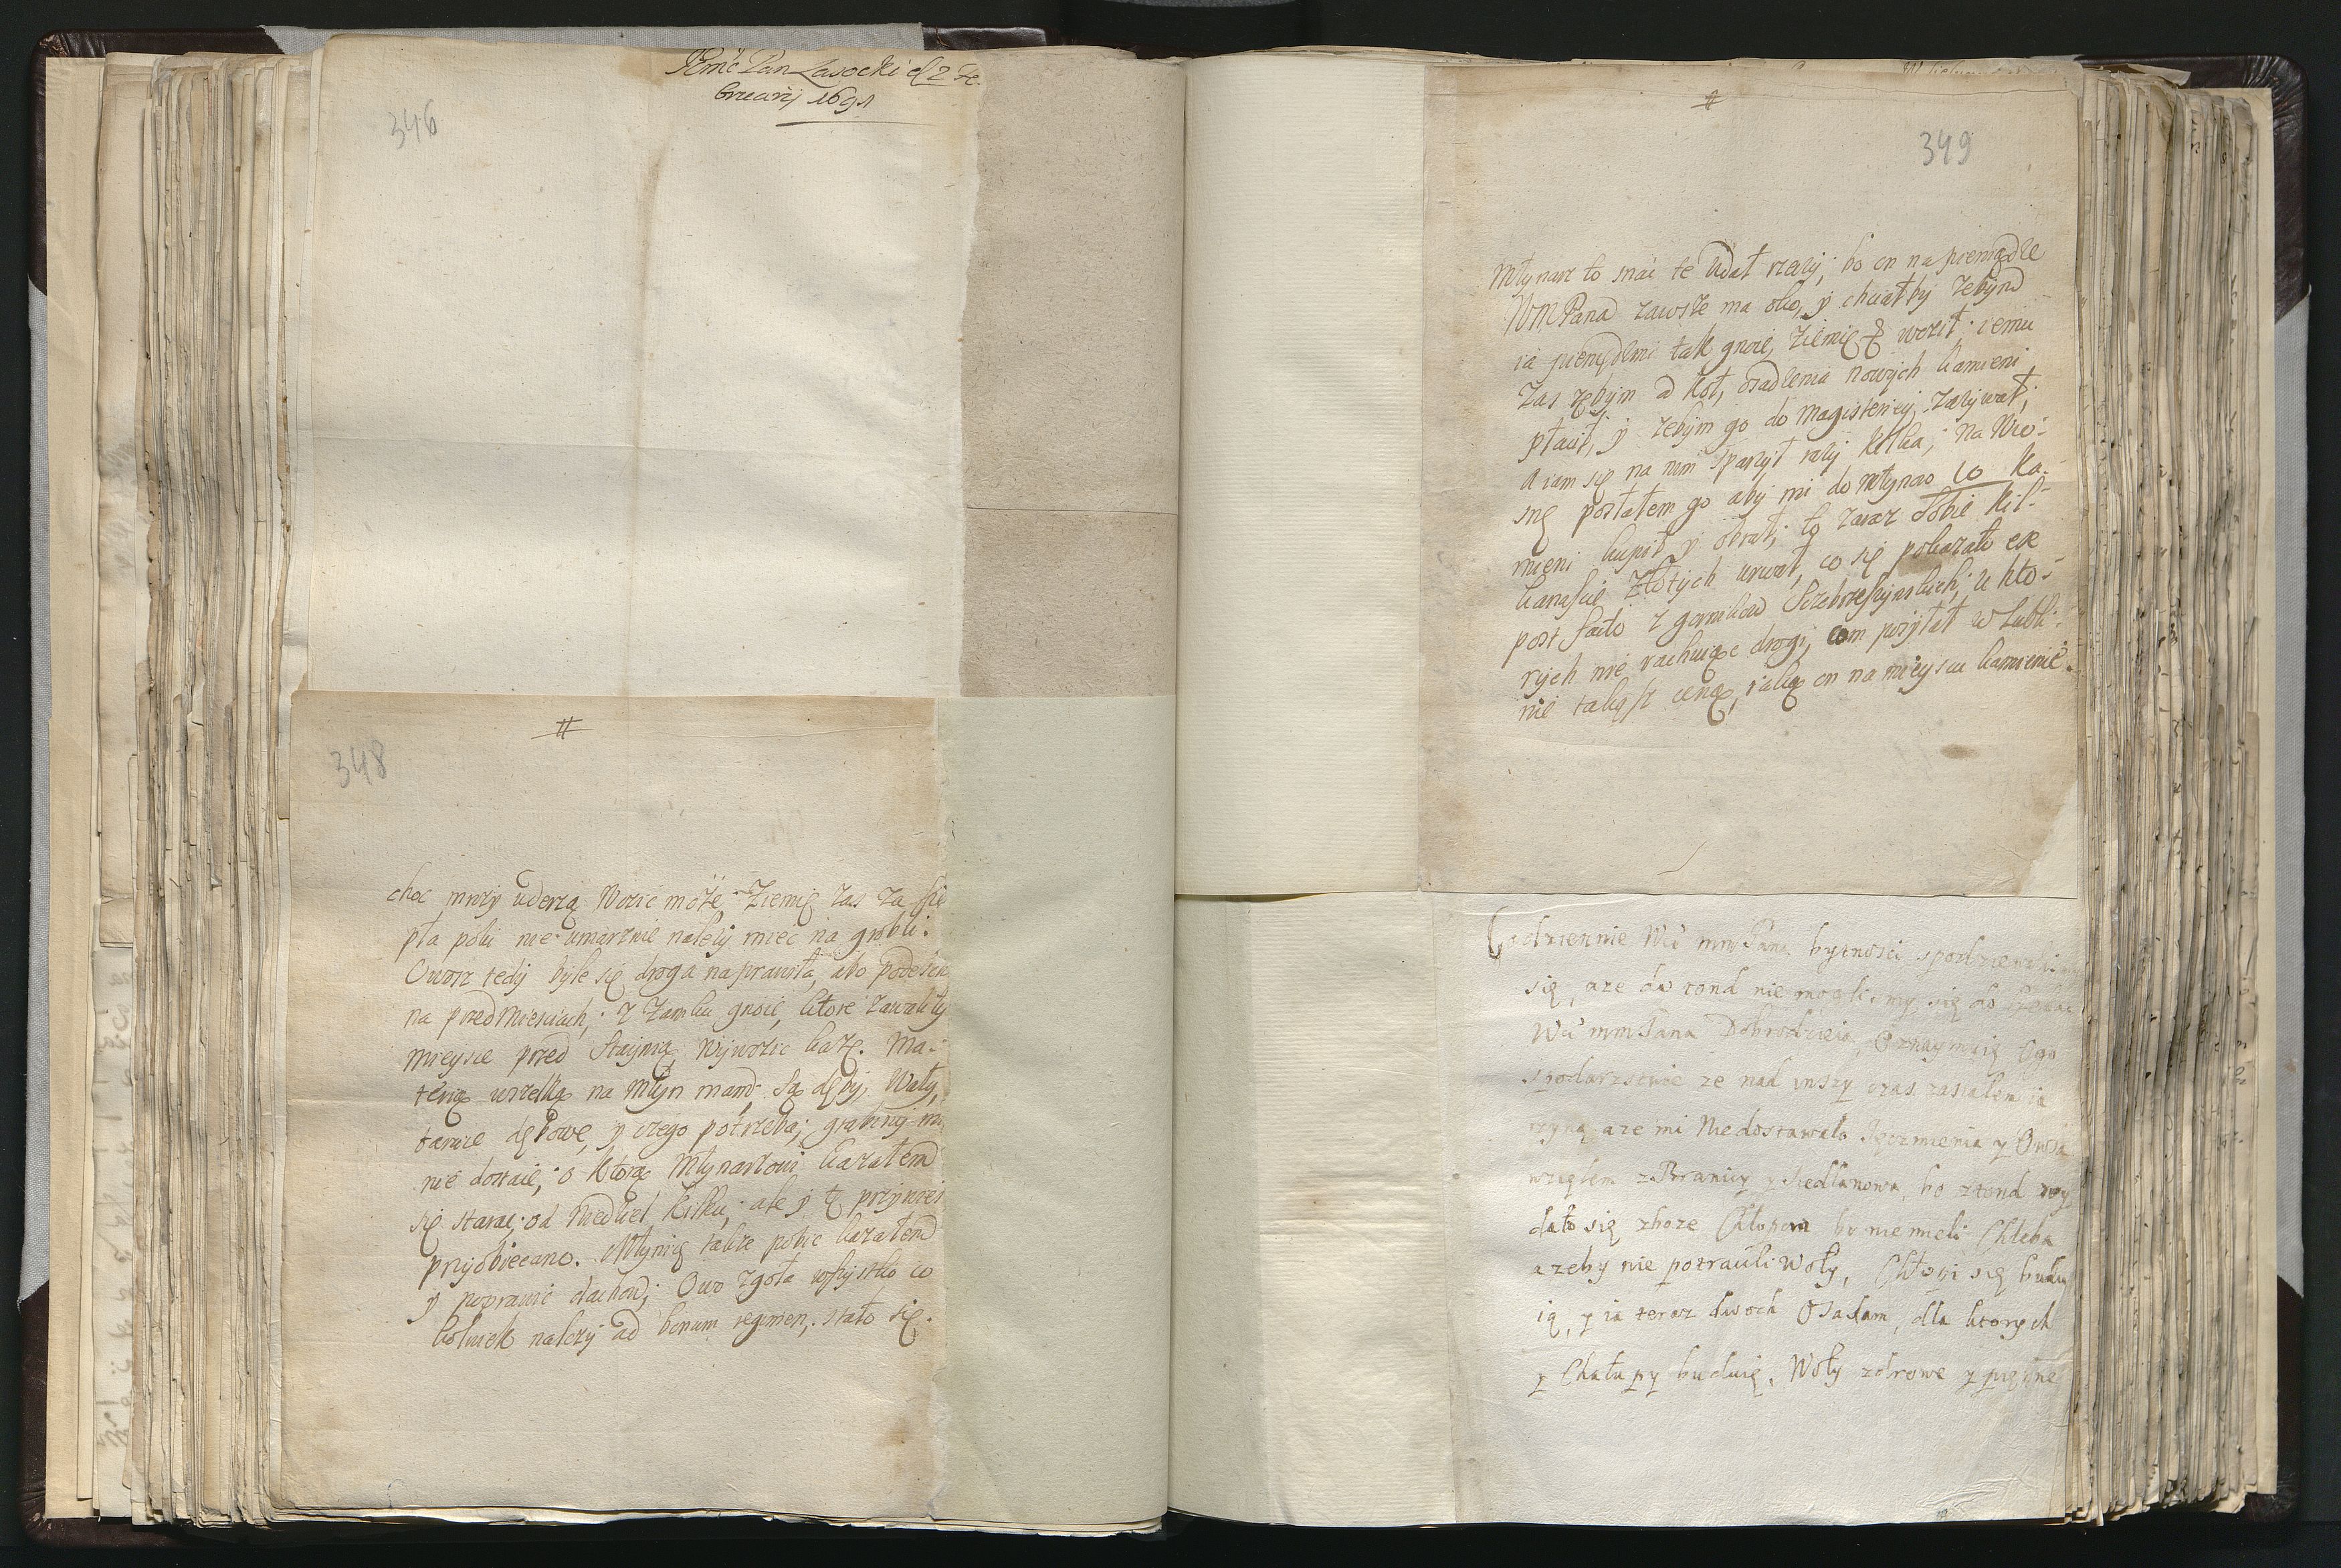 346
Jemć Pan Lasocki d 2 Fe.
bruarij 1691
348
choc mrozy uderzą wozic może. Ziemię zas za sie
pła poki nie umarznie należy miec na grobli.
Owosz tedy byle się droga naprawiła, abo podeschła
na przedmiesciach, z Zamku gnoie, ktore zawaliły
mieysce przed Staynią wywozic każę. Ma-
terią wszelką na Młyn mam, są dęby, Wały,
tarcice dębowe, y czego potrzeba; grabiny mi
nie dostaie, o ktorą Młynarzowi kazałem
się starac od niedziel kilku, ale y tę
przyobiecano. Młynię także pobic kazałem
y poprawic dachow; Owo zgoła wszystko co
kolwiek należy ad bonum regimen, stało się.
349
Młynarz to snac te udał rzeczy, bo on na pieniądze
WMPana zawsze ma oko, y chciałby żebym
ia pieniędzmi tak gnoie, ziemię woził; iemu
zas żebym od koł, osadzenia nowych kamieni
płacił, y żebym go do magisteriey zażywał;
A iam się na nim sparzył razy kilka; na Wio-
snę posłałem go aby mi do młynow co ka-
mieni kupił y obrał; to zaraz sobie kil-
kanascie Złotych urwał, co się pokazało ex
post facto z gornikow Szczebrzeszynskich, u kto-
rych nie rachuiąc drogi, com pożytał w Lubli-
nie takąsz cenę, iaką on na mieyscu kamienie.
Codziennie Wć mm Pana bytnosci spodziewali
się, aze do tond nie moglismy się do
Wć mm Pana Dobrodzieia, Oznaymuię Ogo
spodarzstwie ze nad inszy czas zasiałem ia
rzyną aze mi Niedostawało Jęczmienia y Owsa
wzięłem z Branicy y Siedlanowa, bo ztond wy
dało się zboze Chłopom bo niemieli Chleba
azeby nie potracili Woły, Chłopi się budu
ią, y ia teraz dwoch Osadzam, dla ktorych
y Chałupy buduię. Woły zdrowe y piękne